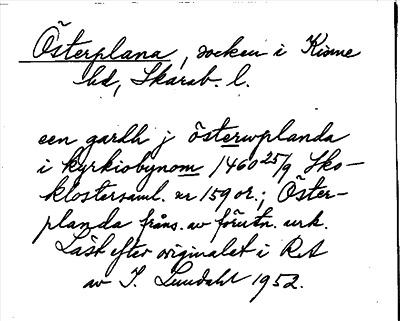 Österplana, socken i Kinne
hd, Skarab. l.
een gardh j österwplanda
i kyrkiobynom 1460 25/9 Sko-
klostersaml. nr 159 or.; Öster-
planda från s. av förutn. urk.
Läst efter originalet i RA
av I. Lundahl 1952.